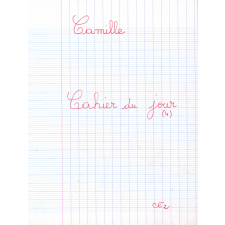 Camille
Cahier du jour
(4)
CE2